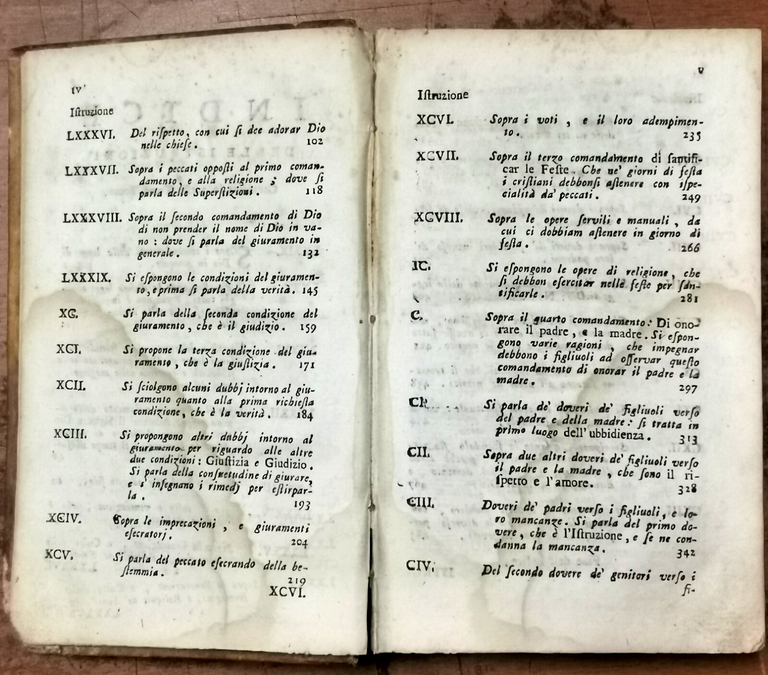 iv
Iſtruzione
LXXXVI. Del riſpetto, con cui ſi dee adorar Dio
nelle chieſe. 102
LXXXVII. Sopra i peccati oppoſti al primo coman-
damento, e alla religione; dove ſi
parla delle Superſtizioni. 118
LXXXVIII. Sopra il ſecondo comandamento di Dio
di non prender il nome di Dio in va-
no: dove ſi parla del giuramento in
generale. 132
LXXXIX. Si eſpongono le condizioni del giuramen-
to, e prima ſi parla della verità. 145
XC. Si parla della ſeconda condizione del
giuramento, che è il giudizio. 159
XCI. Si propone la terza condizione del giu-
ramento, che è la giuſtizia. 171
XCII. Si ſciolgono alcuni dubbj intorno al giu-
ramento quanto alla prima richieſta
condizione, che è la verità. 184
XCIII. Si propongono altri dubbj intorno al
giuramento per riguardo alle altre
due condizioni: Giuſtizia e Giudizio.
Si parla della conſuetudine di giurare,
e s' inſegnano i rimedj per eſtirpar-
la. 193
XCIV. Sopra le imprecazioni, e giuramenti
eſecratorj. 204
XCV. Si parla del peccato eſecrando della be-
ſtemmia. 219
XCVI.
v
Iſtruzione
XCVI. Sopra i voti, e il loro adempimen-
to. 235
XCVII. Sopra il terzo comandamento di ſantifi-
car le Feſte. Che ne' giorni di feſta
i criſtiani debbonſi aſtenere con iſpe-
cialità da' peccati. 249
XCVIII. Sopra le opere ſervili e manuali, da
cui ci dobbiam aſtenere in giorno di
feſta. 266
IC. Si eſpongono le opere di religione, che
ſi debbon eſercitar nelle feſte per ſan-
tificarle. 281
C. Sopra il quarto comandamento: Di ono-
rare il padre, e la madre. Si eſpon-
gono varie ragioni, che impegnar
debbono i figliuoli ad oſſervar queſto
comandamento di onorar il padre e la
madre. 297
CI. Si parla de' doveri de' figliuoli verſo
del padre e della madre: ſi tratta in
primo luogo dell'ubbidienza. 313
CII. Sopra due altri doveri de' figliuoli verſo
il padre e la madre, che ſono il ri-
ſpetto e l'amore. 328
CIII. Doveri de' padri verſo i figliuoli, e lo-
ro mancanze. Si parla del primo do-
vere, che è l'Iſtruzione, e ſe ne con-
danna la mancanza. 342
CIV. Del ſecondo dovere de' genitori verſo i
fi-